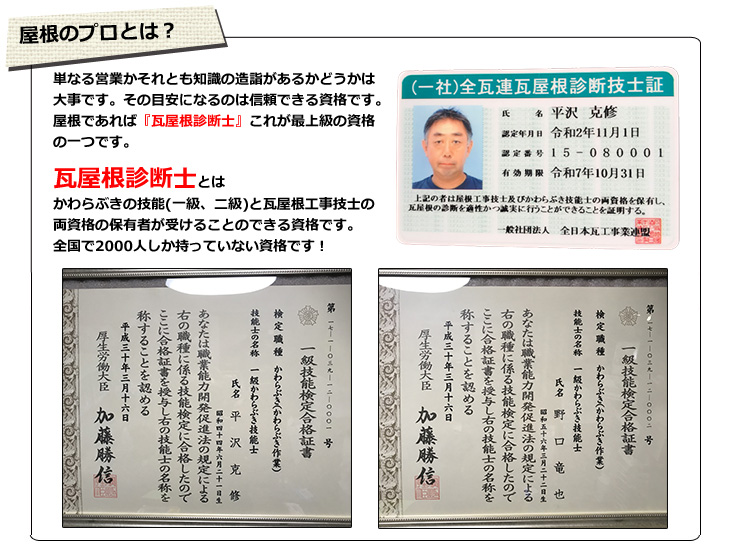 屋根のプロとは？
単なる営業かそれとも知識の造詣があるかどうかは
大事です。その目安になるのは信頼できる資格です。
屋根であれば『瓦屋根診断士』これが最上級の資格
の一つです。
瓦屋根診断士とは
かわらぶきの技能(一級、二級)と瓦屋根工事技士の
両資格の保有者が受けることのできる資格です。
全国で2000人しか持っていない資格です！
(一社)全瓦連瓦屋根診断技士証
氏 名 平沢 克修
認定年月日 令和2年11月1日
認定番号 15-080001
有効期限 令和7年10月31日
上記の者は屋根工事技士及びかわらぶき技能士の両資格を保有し、
瓦屋根の診断を適性かつ誠実に行うことができることを証明する。
一般社団法人 全日本瓦工事業連盟
第一七-一-〇三九-一二-〇〇〇一号
一級技能検定合格証書
検定職種 かわらぶき(かわらぶき作業)
技能士の名称 一級かわらぶき技能士
氏名 平沢克修
昭和四十四年六月二十一日生
あなたは職業能力開発促進法の規定による
右の職種に係る技能検定に合格したので
ここに合格証書を授与し右の技能士の名称を
称することを認める
平成三十年三月十六日
厚生労働大臣 加藤勝信
第一七-一-〇三九-一二-〇〇〇二号
一級技能検定合格証書
検定職種 かわらぶき(かわらぶき作業)
技能士の名称 一級かわらぶき技能士
氏名 野口竜也
昭和五十六年三月二十二日生
あなたは職業能力開発促進法の規定による
右の職種に係る技能検定に合格したので
ここに合格証書を授与し右の技能士の名称を
称することを認める
平成三十年三月十六日
厚生労働大臣 加藤勝信